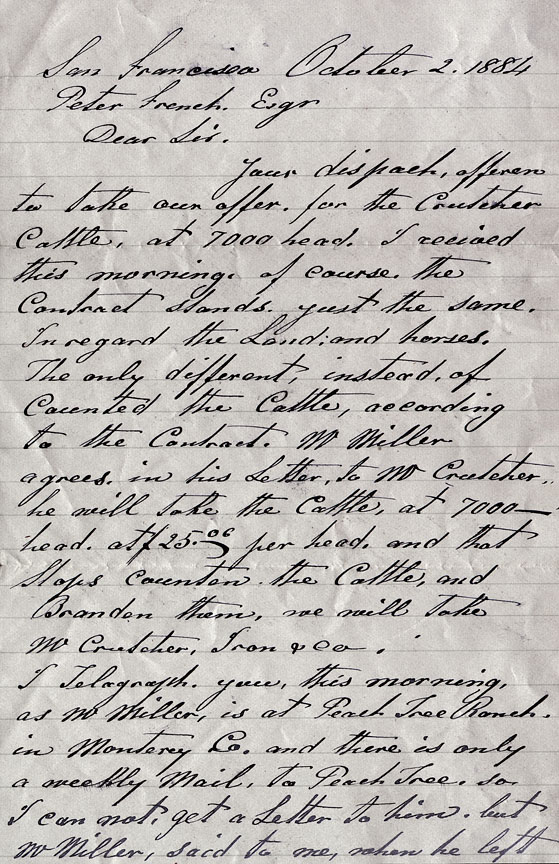 San Francisco October 2. 1884
Peter French. Esqr
Dear Sir.
Your dispach, offeren
to take our offer. for the Crutcher
Cattle, at 7000 head. I recived
this morning. of course. the
Contract stands. yust the same.
In regard the Land: and horses.
The only different, instead. of
Counted the Cattle, according
to the Contract. Mr Miller
agrees. in his Letter, to Mr Crutcher.
he will take the Cattle, at 7000—
head. at $25.00 per head. and that
Stops counten. the Cattle, and
Branden them, we will take
Mr Crutcher, Iron & co.
I Telagraph. you, this morning,
as Mr Miller, is at Peach Tree Ranch.
in Monterey Co. and there is only
a weekly Mail, to Peach Tree. so
I can not, get a Letter to him. but
Mr Miller, said to me, when he left